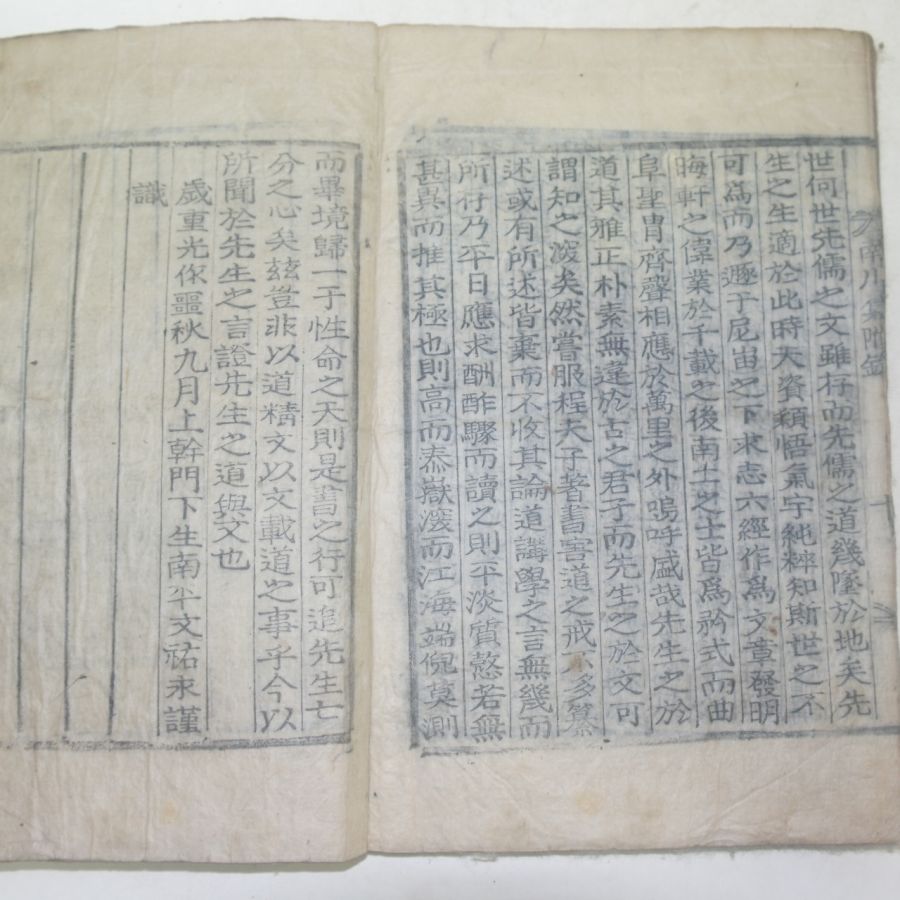 世何世先儒之文雖存而先儒之道幾墜於地矣先
生之生適於此時天資穎悟氣宇純粹知斯世之不
可爲而乃遯于尼峀之下求志六經作爲文章發明
晦軒之偉業於千載之後南土之士皆爲矜式而曲
阜聖胄齊聲相應於萬里之外嗚呼盛哉先生之於
道其雅正朴素無違於古之君子而先生之於文可
謂知之深矣然嘗服程夫子著書害道之戒不多纂
述或有所述皆棄而不收其論道講學之言無幾而
所存乃平日應求酬酢驟而讀之則平淡質慤若無
其異而推其極也則高而泰嶽深而江海端倪莫測
而畢境歸一于性命之天則是書之行可追先生七
分之心矣玆豈非以道精文以文載道之事乎今以
所聞於先生之言證先生之道與文也
歲重光作噩秋九月上幹門下生南平文祐永謹
識